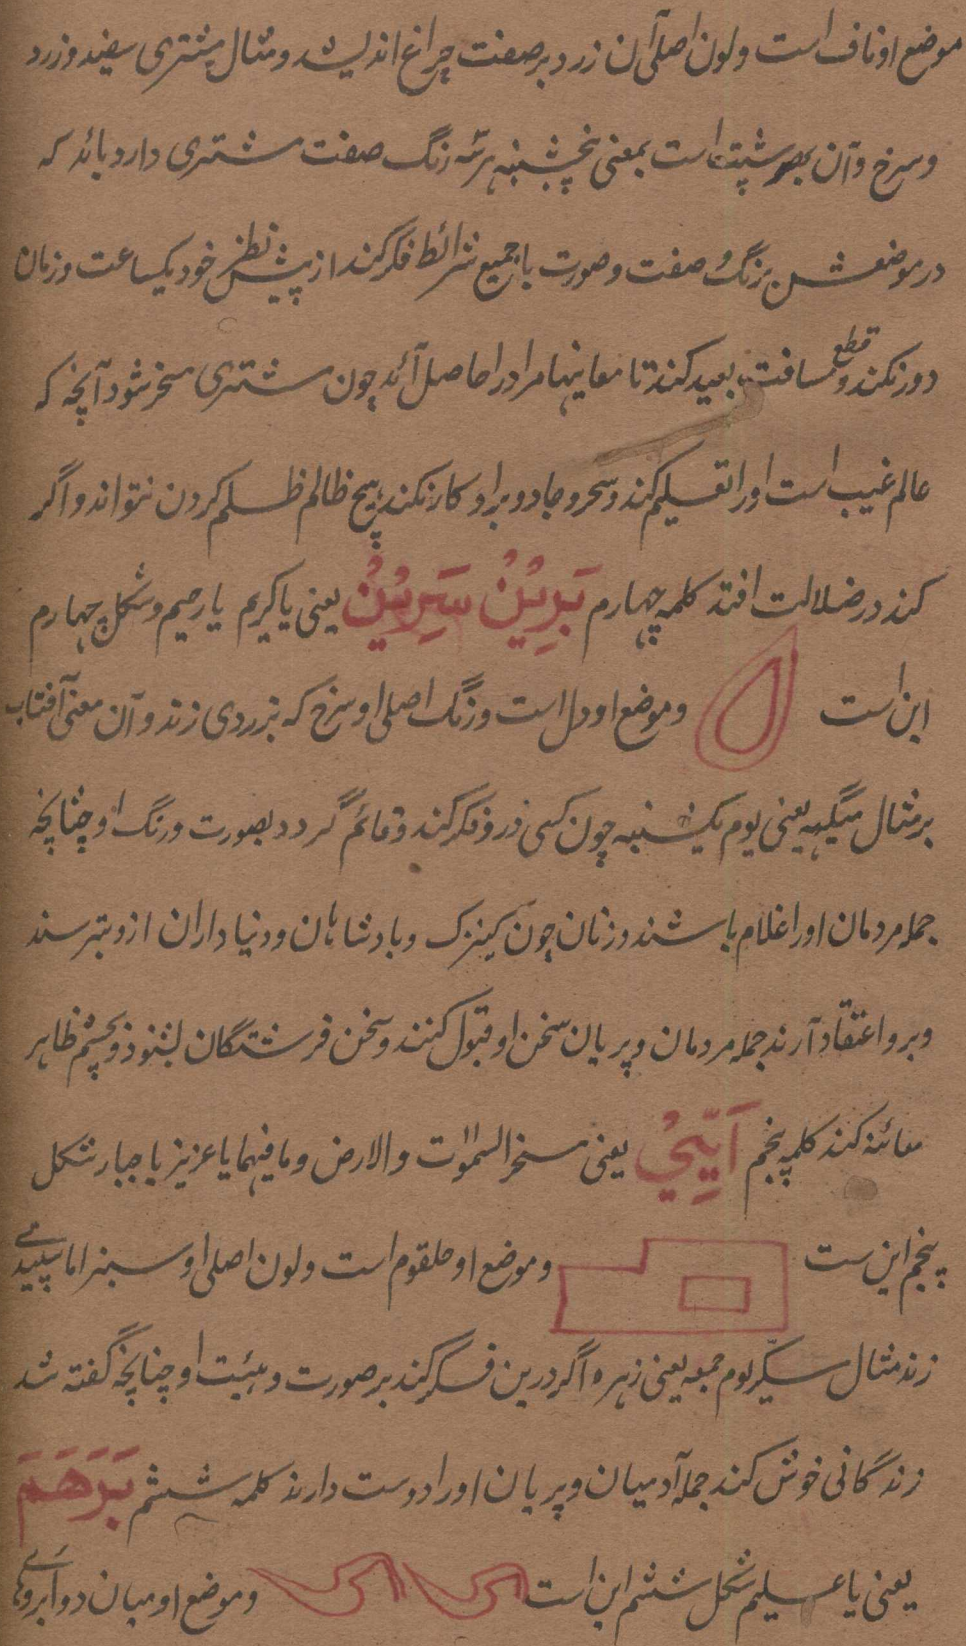 موضع او ناف است و لون اصلی آن زرد بر صفت چراغ اندیشد و مثال مشتری سفید و زرد
و سرخ و آن است بمعنی پنجشنبه هر سه رنگ صفت مشتری دارد باید که
در موضعش برنگ و صفت و صورت با جمیع شرائط فکر کند از پیش نظر خود یکساعت و زمان
دور نکند و قطع مسافت بعید کند تا معاینها مر او را حاصل آید چون مشتری مسخر شود آنچه که
عالم غیب است او را تعلیم کند و سحر و جادو بر او کار نکند هیچ ظالم ظلم کردن نتواند و اگر
کند در ضلالت افتد کلمه چهارم بَرِیُنُ سَرِیُنُ یعنی یا کریم یا رحیم و شکل چهارم
این است و موضع او دل است و رنگ اصلی او سرخ که بزردی زند و آن معنی آفتاب
بر مثال یعنی یوم یکشنبه چون کسی درو فکر کند و قائم گردد بصورت و رنگ او چنانچه
جمله مردمان او را غلام باشند و زنان چون کنیزک و بادشاهان و دنیاداران ازو بترسند
و برو اعتقاد آرند جمله مردمان و پریان سخن او قبول کنند و سخن فرشتگان بشنود و بچشم ظاهر
معائنه کند کلمه پنجم یعنی مسخر السموات والارض و ما فیهما یا عزیز یا جبار شکل
پنجم این ست و موضع او حلقوم است و لون اصلی او سبز اما سپیدی می
زند مثال سکر یوم جمعه یعنی زهره اگر درین فکر کند بر صورت و هیئت او چنانچه گفته شد
زندگانی خوش کند جمله آدمیان و پریان او را دوست دارند کلمه ششم بَرَهَمَ
یعنی یا علیم شکل ششم این است و موضع او میان دو ابروی